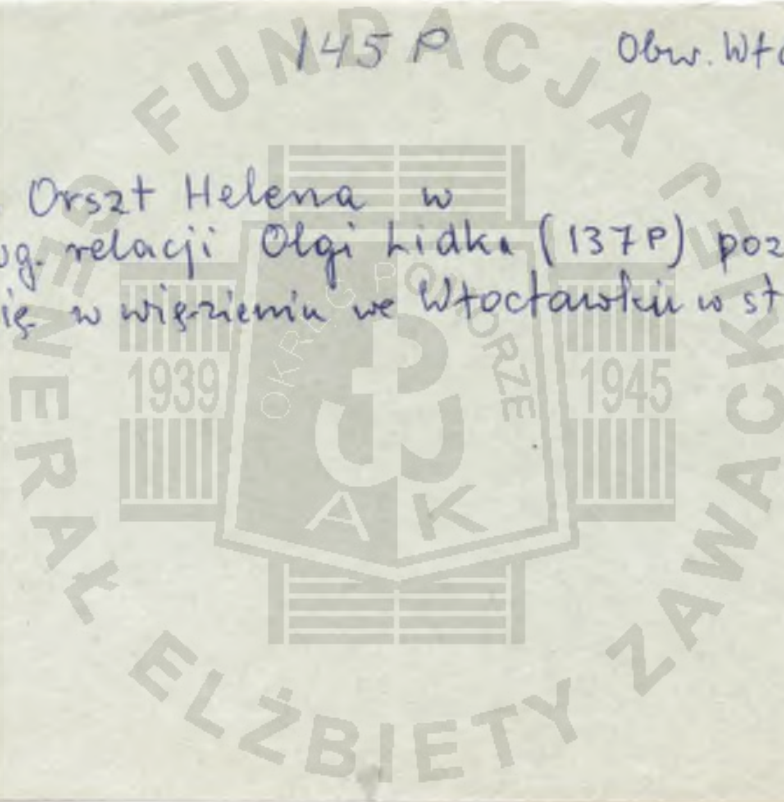 145 P Obw. Wł
Orszt Helena w
wg. relacji Olgi Lidka (137P) poz
się w więzieniu we Włocławku w st
FUNDACJA
GENERAŁ ELŻBIETY ZAWACKIEJ
OKRĘG POMORZE
1939 1945
A K